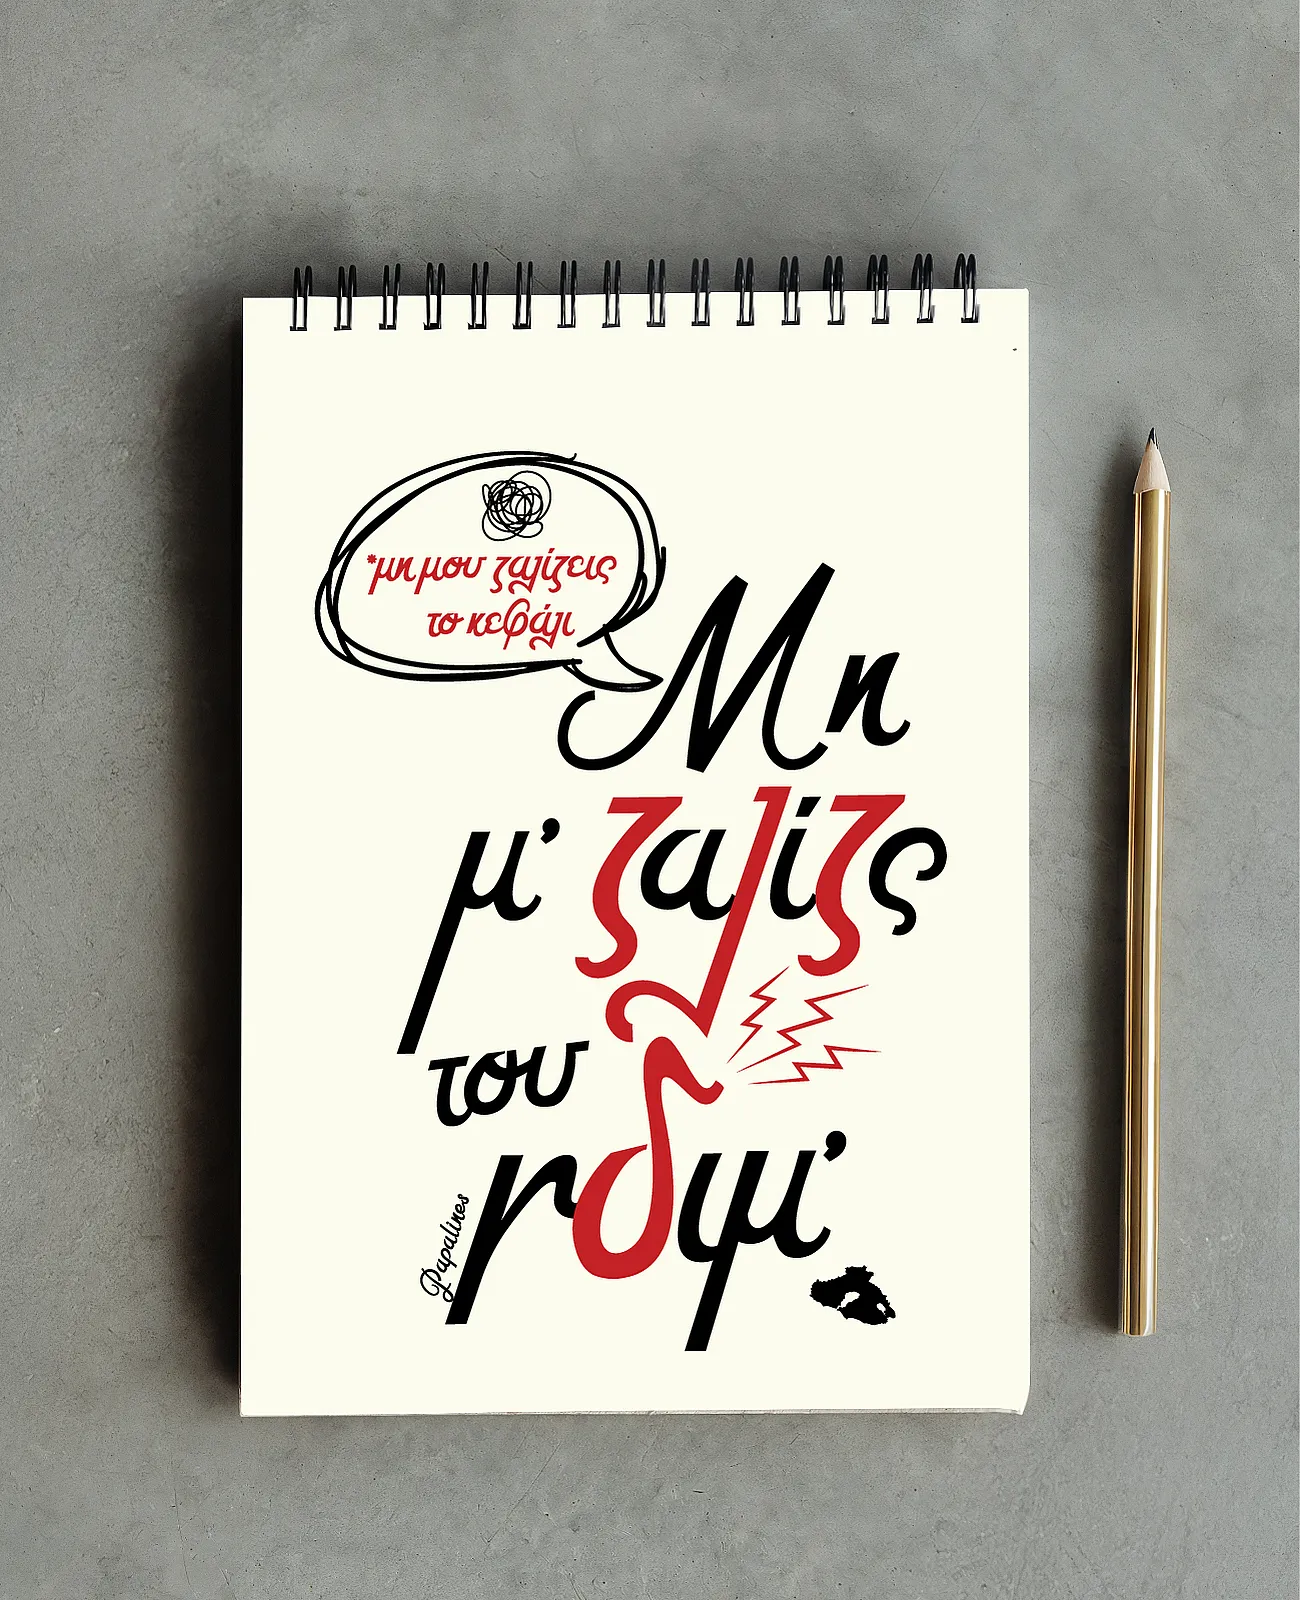 *μη μου ζαλίζεις
το κεφάλι
Μη
μ' ζαλίζς
του
γδιμ'
Papalines